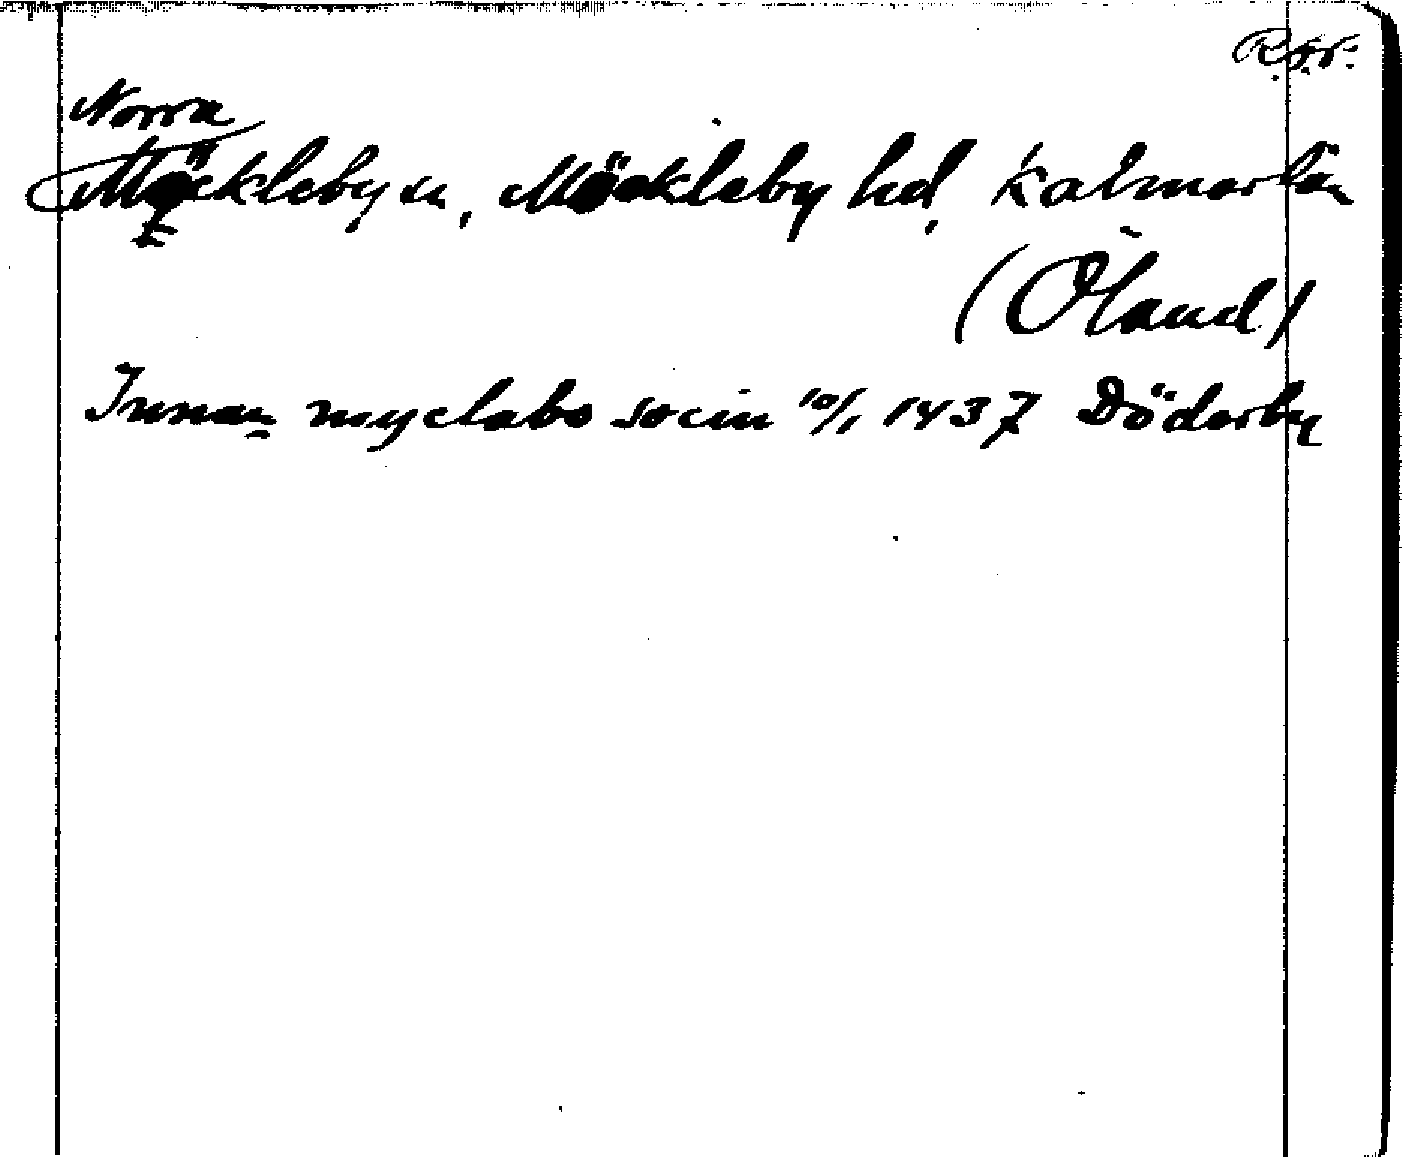 Norra
Möckleby sn, Möckleby hd, Kalmar län
(Öland)
Innan myclabo socin 10/1 1437 Döderby